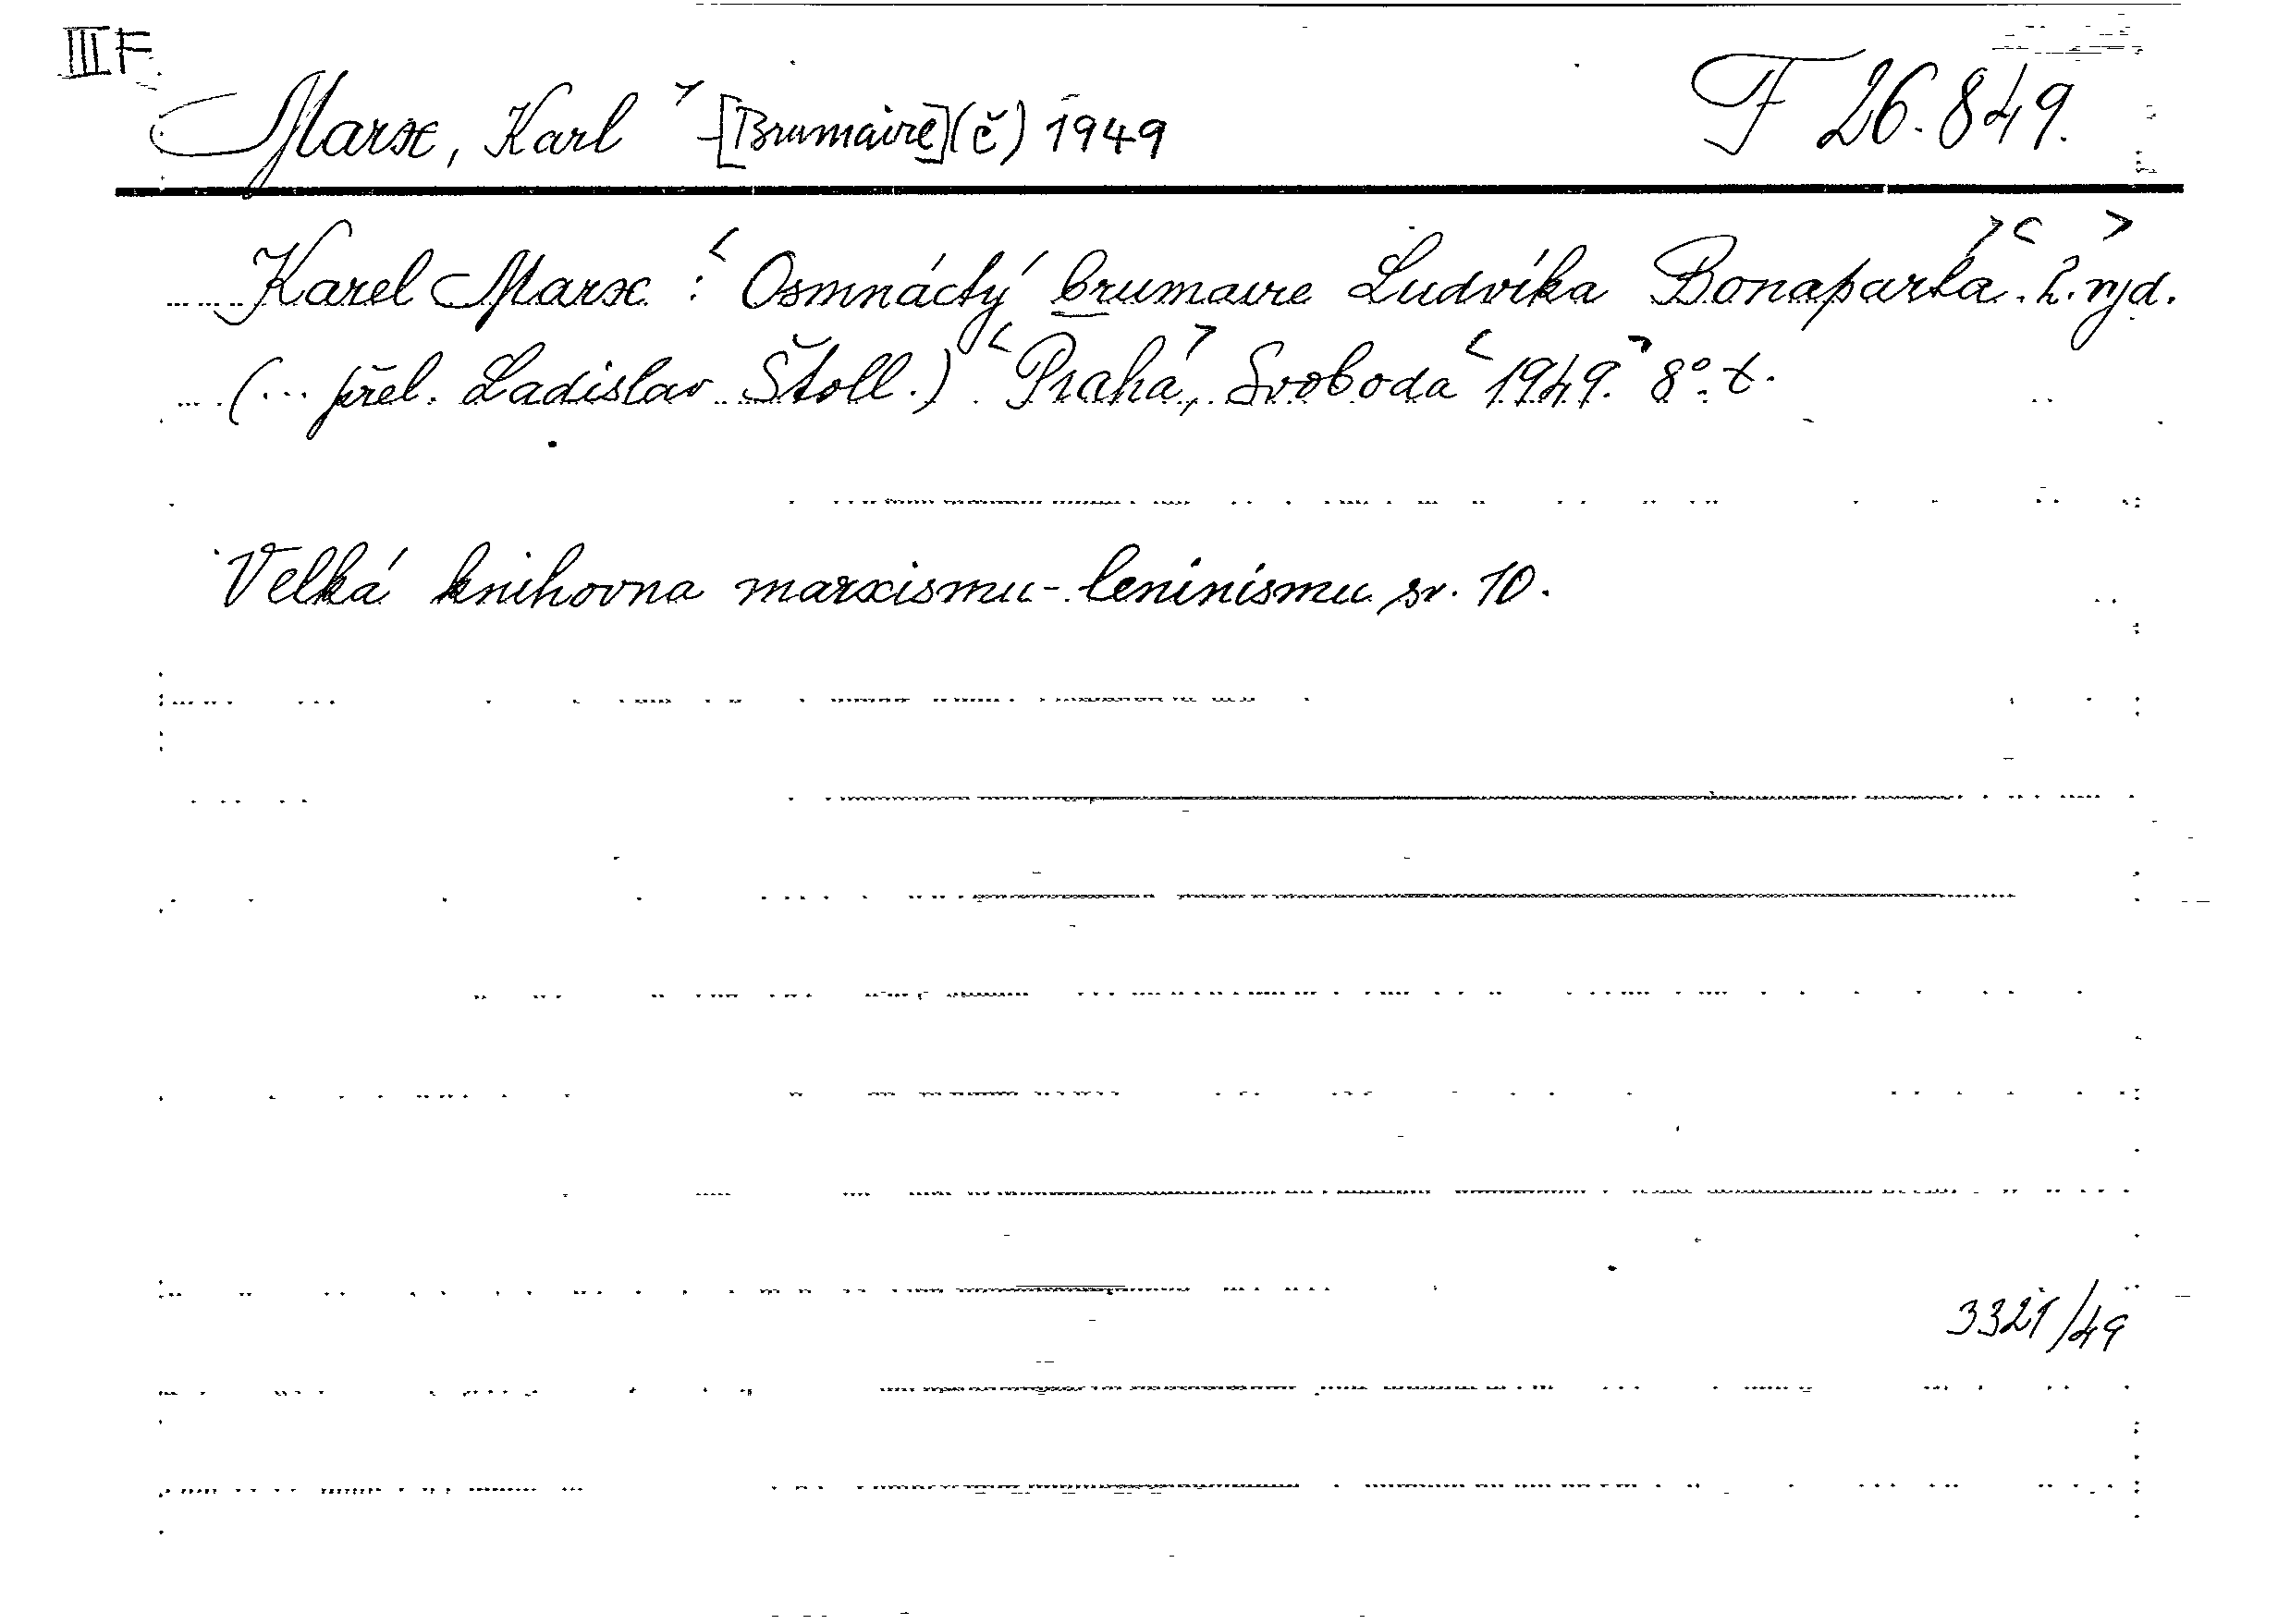 III F
Marx, Karl [Brumaire] (č) 1949 F 26.849.
Karel Marx: Osmnáctý brumaire Ludvíka Bonaparta. 2. vyd.
(... přel. Ladislav Štoll.) Praha, Svoboda 1949. 8° t.
Velká knihovna marxismu-leninismu sv. 10.
3321/49